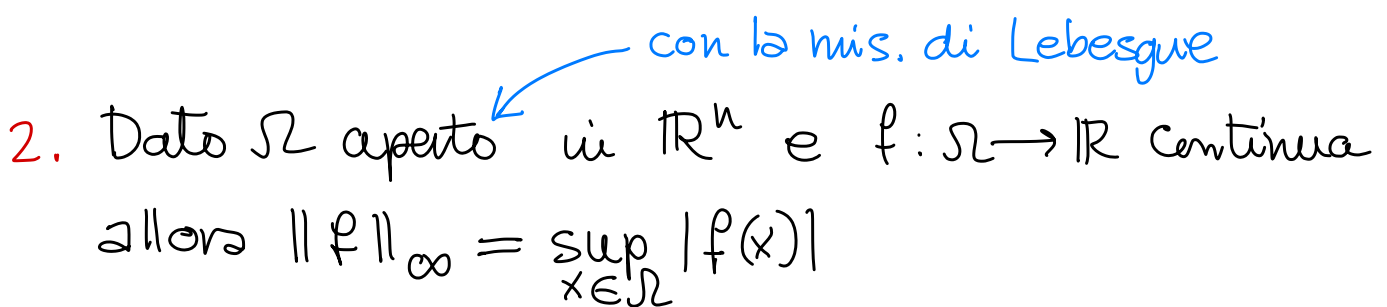 con la mis. di Lebesgue
2. Dato Ω aperto in ℝⁿ e f : Ω → ℝ continua
allora ‖f‖_∞ = sup_{x∈Ω} |f(x)|